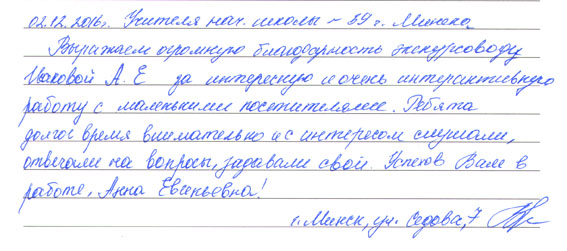 02.12.2016г. Учителя нач. школы №59 г. Минска
Выражаем огромную благодарность экскурсоводу
Ивковой А. Е за интересную и очень интерактивную
работу с маленькими посетителями. Ребята
долгое время внимательно и с интересом слушали,
отвечали на вопросы, задавали свои. Успехов Вам в
работе, Анна Евгеньевна!
г. Минск, ул. Седова, 7